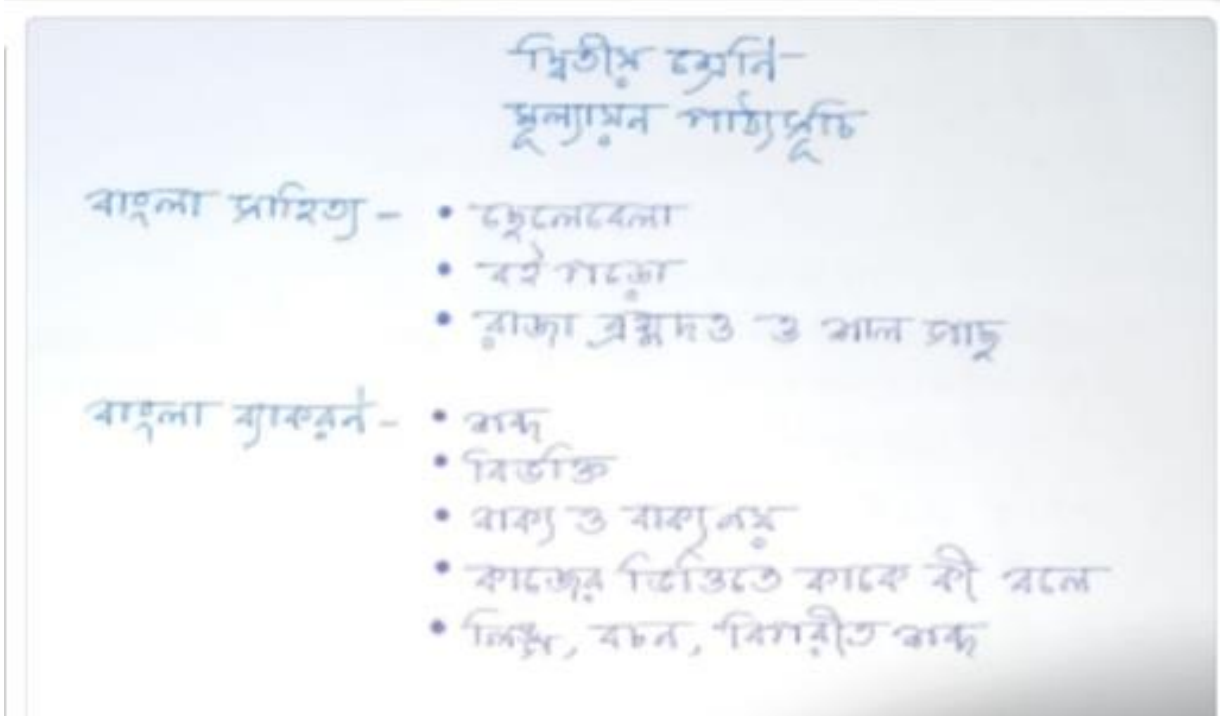 দ্বিতীয় শ্রেনি-
মূল্যায়ন পাঠ্যসূচি
বাংলা সাহিত্য - • ছেলেবেলা
• বই পড়ো
• রাজা ব্রহ্মদত্ত ও শাল গাছ
বাংলা ব্যাকরন - • শব্দ
• বিভক্তি
• বাক্য ও বাক্য নয়
• কাজের ভিত্তিতে কাকে কী বলে
• লিঙ্গ, বচন, বিপরীত শব্দ